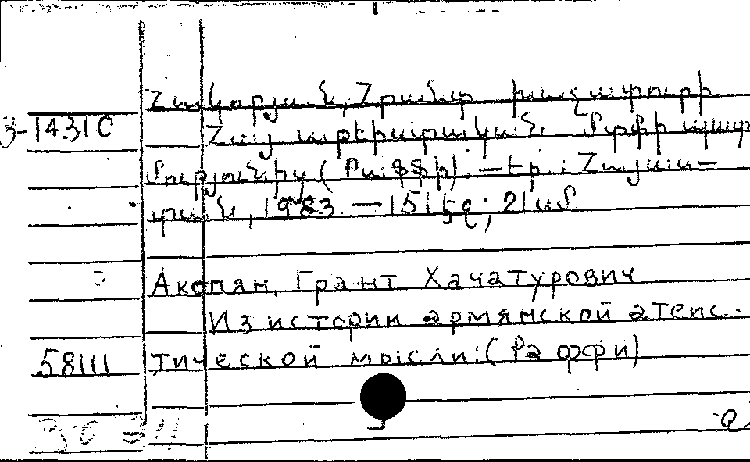 Հակոբյան, Հրանտ Խաչատուրի
3-1431С
Հայ աթեիստական մտքի պատ
մությունից (Րաֆֆի). — Եր.: Հայաս-
տան, 1983. — 151 էջ; 21 սմ
Акопян, Грант Хачатурович
Из истории армянской атеис-
58111
тической мысли: (Раффи)